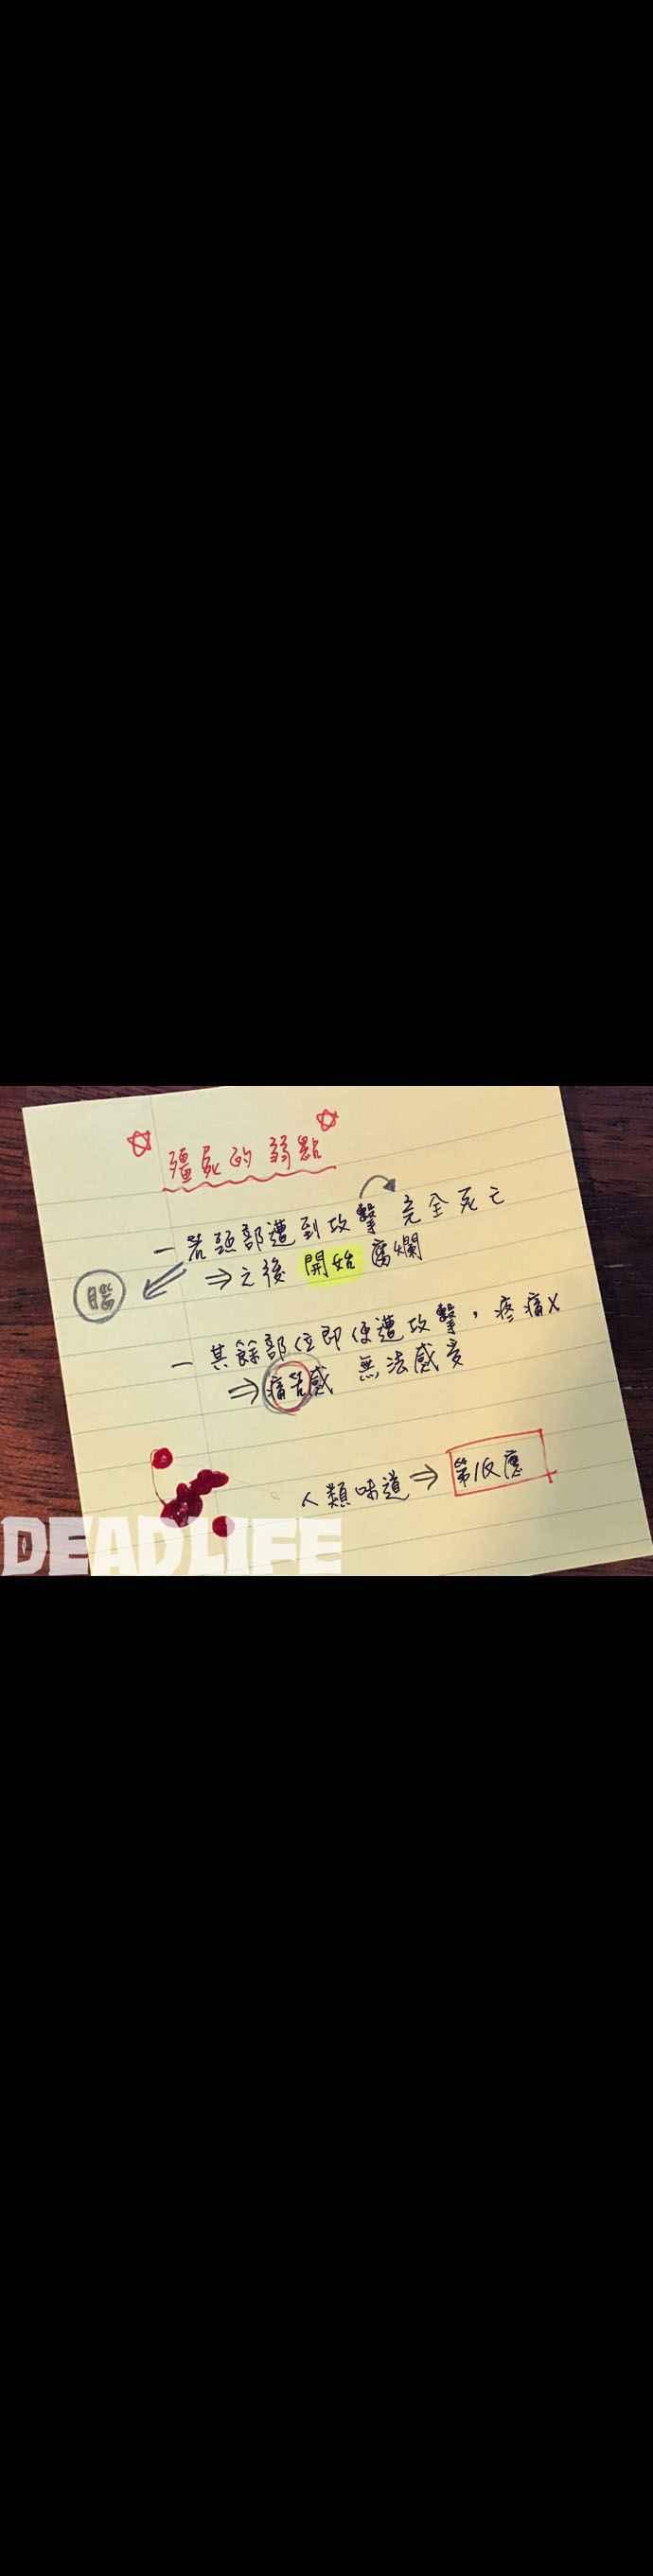 ☆殭屍的弱點☆
- 若頭部遭到攻擊 完全死亡
腦 ⇒ 之後 開始 腐爛
- 其餘部位即使遭攻擊，疼痛X
⇒ 痛苦感 無法感受
人類味道 ⇒ 第1反應
DEADLIFE